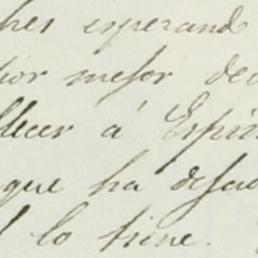 ches esperand
por mejor dec
llecer á Espir
que ha desac
lo tiene.